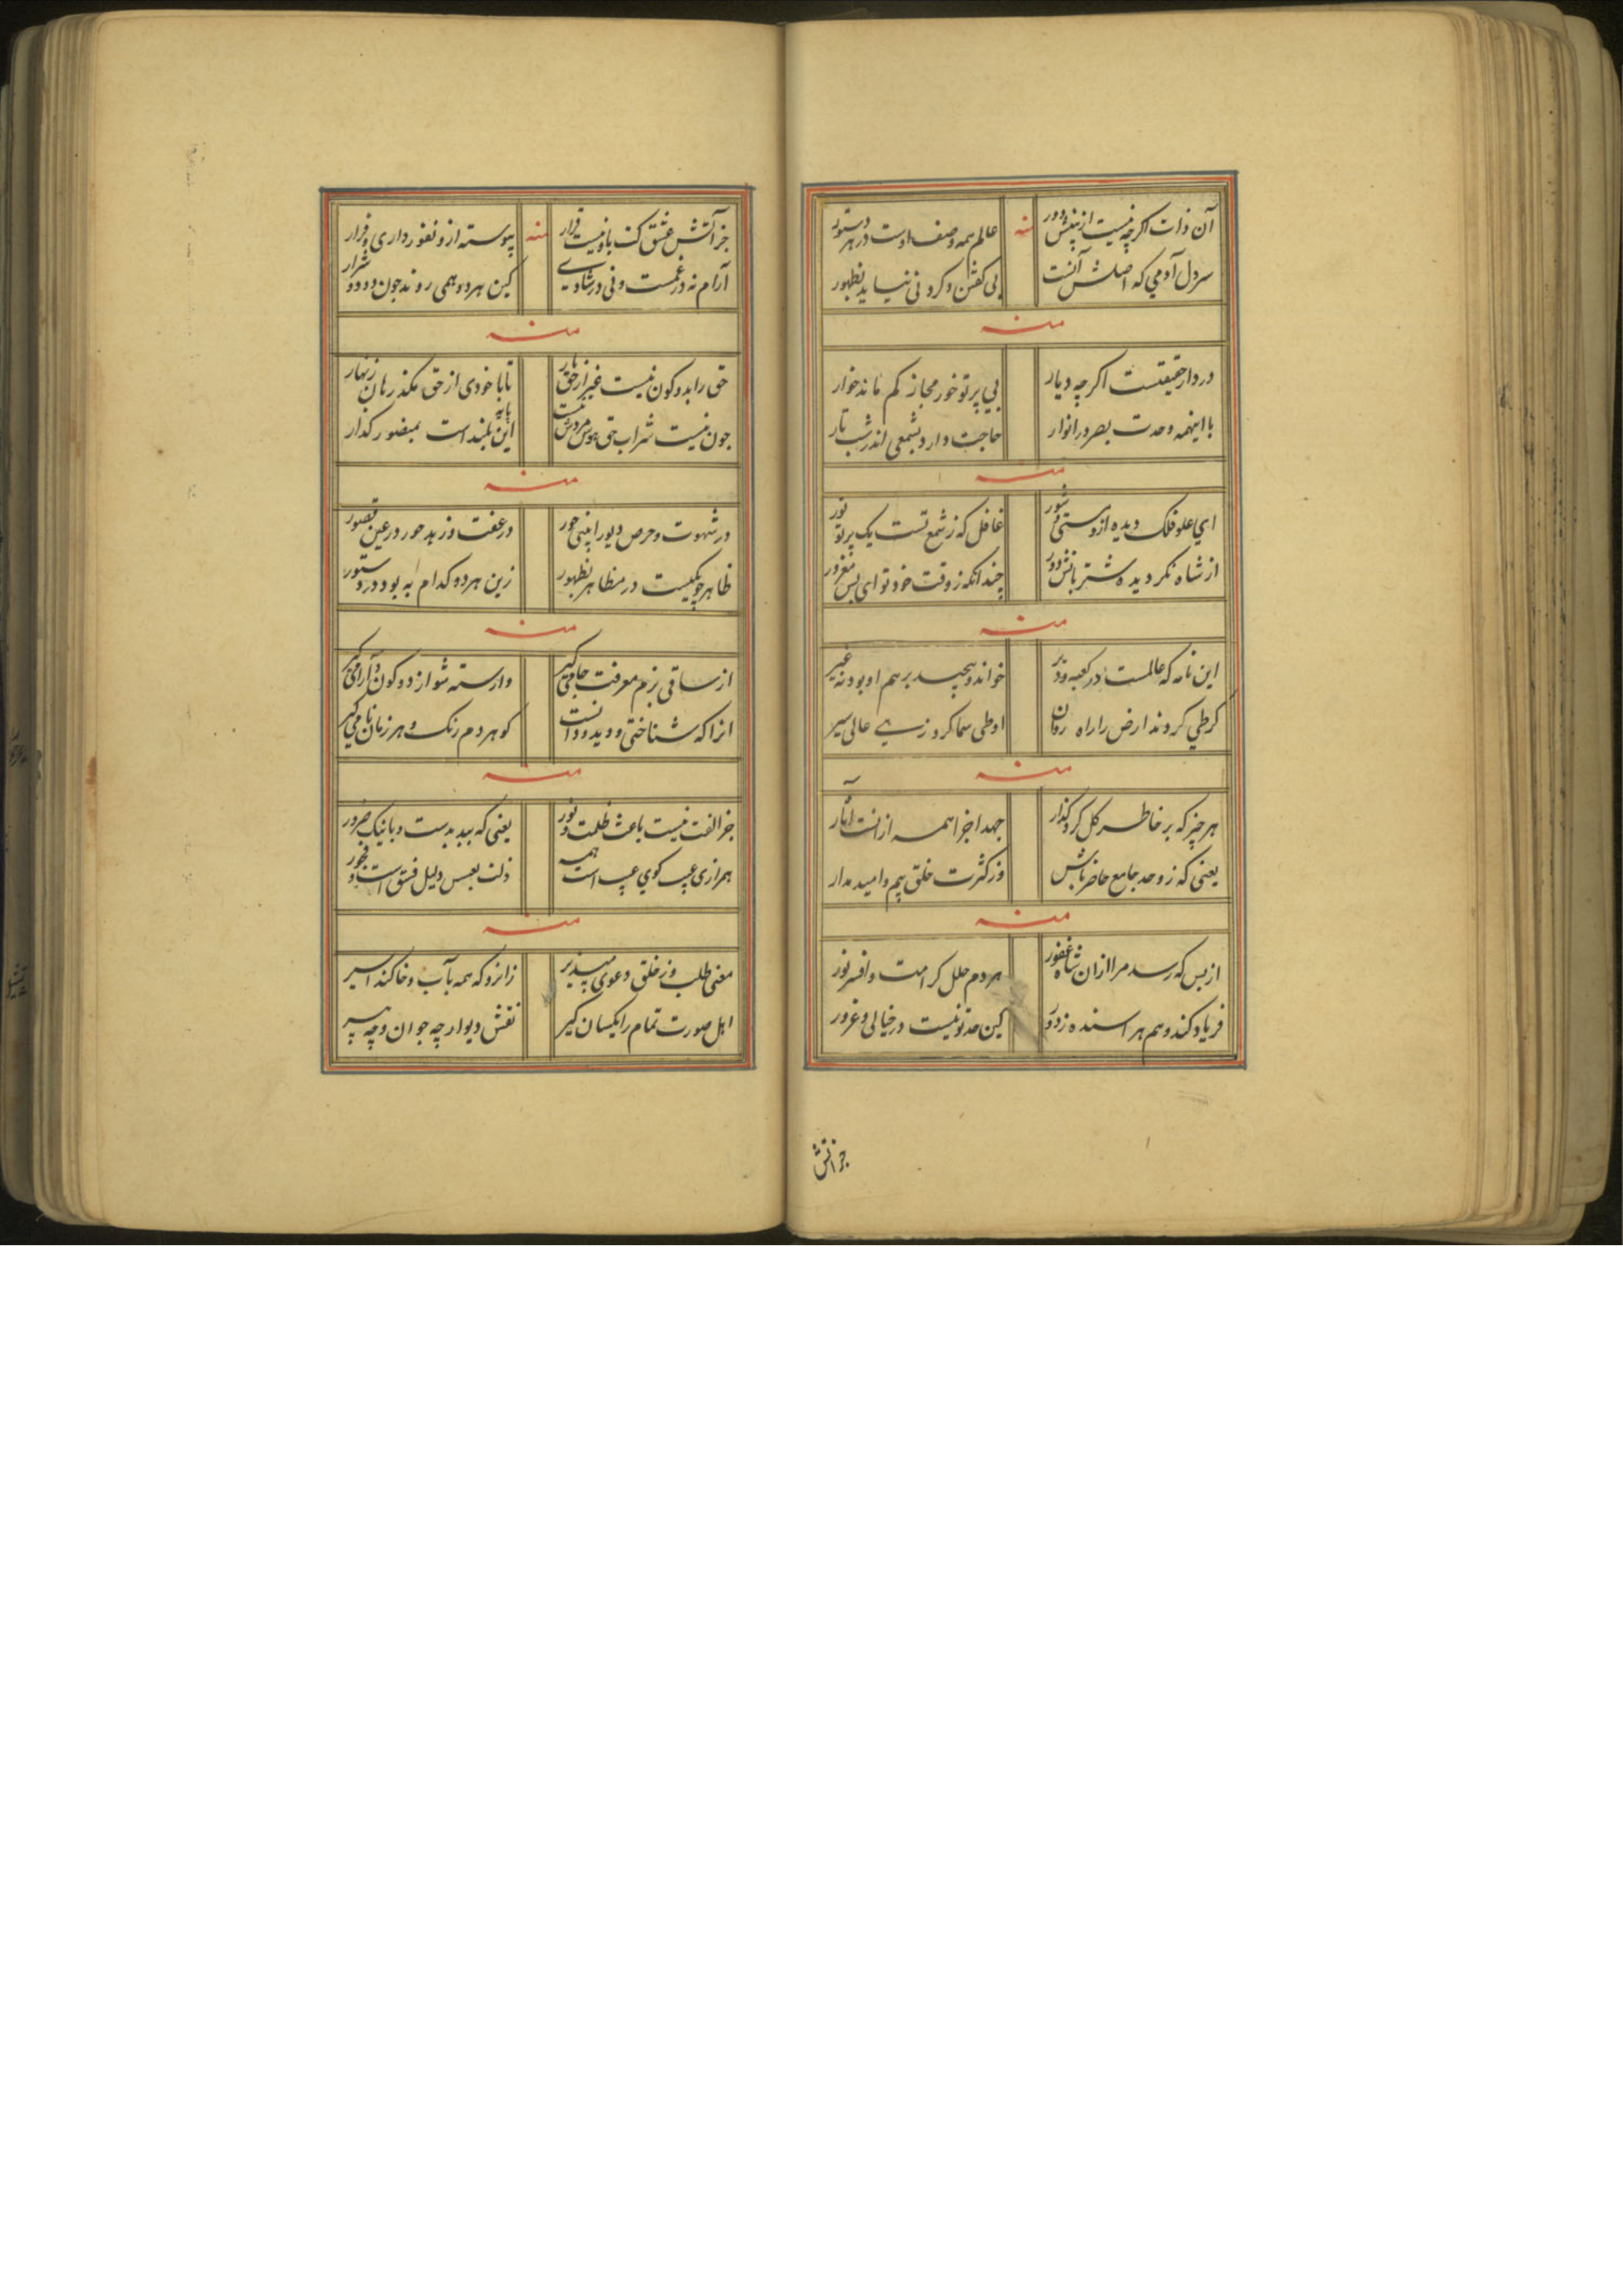 آن ذات اگرچه نیست از بینش دور منه عالم همه وصف اوست در هر دستور
سر دل آدمی که اصلش آنست بی کفتن و کردنی نیاید بظهور
منه
در دار حقیقتست اکرچه دیار بی پرتو خور مجاز کم ماند خوار
با اینهمه وحدت بصر در انوار حاجت دارد بشمعی اندر شب تار
منه
ای علو فلک دیده از دستی شور غافل که ز شمع تست یک پرتو نور
از شاه نکردیده شتربانش دور چندانکه ز وقت خود تو ای بس مغرور
منه
این نامه که عالمست در کعبه و دیر خواند و پیچید برهم او بود نه غیر
کرطی کردند ارض را راه روان او طی سما کرد زهی عالی سیر
منه
هر چیز که بر خاطر کل کرد گذار جهد اجزا همه ازانست آثار
یعنی که ز وحد جامع حاضر باش وز کثرت خلق بیم و امید مدار
منه
از بس که رسد مرا ازان شاه غفور هر دم حلل کرامت و افسر نور
فریاد کند وهم هراسنده ز دور کین حد تو نیست در خیالی و غرور
جز آتش
جز آتش عشق کت باو نیست قرار منه پیوسته ازو نفور داری و فرار
آرام نه در غمست و نی در شادی کین هر دو همی روند چون دود و شرار
منه
حق را بدو کون نیست غیر از حق یار تا با خودی از حق مکذر هان زنهار
چون نیست شراب حق بدوش مردش نیست این پایه بلند است بمنصور کذار
منه
در شهوت و حرص دیو را بینی حور در عفت و زهد حور در عین قصور
ظاهر چو یکیست در مظاهر بظهور زین هر دو کدام به بود در دستور
منه
از ساقی بزم معرفت جامی کیر وارسته شو از دو کون و آرامی کیر
انرا که شناختی و دید و دانست کو هر دم رنک و هر زمان نامی کیر
منه
جز الفت نیست باعث ظلمت و نور یعنی که ببد بدست و با نیک ضرور
همرازی عیب کوی عیب است همه ذلت بعسس دلیل فسق است و فجور
منه
معنی طلب و ز خلق دعوی مپذیر زانرو که همه بآب و خاکند اسیر
اهل صورت تمام را یکسان کیر نقش دیوار چه جوان و چه پیر